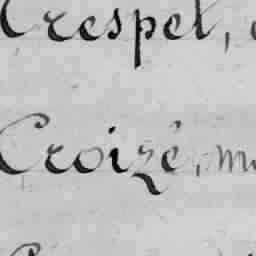 Crespel,
Croizé, m